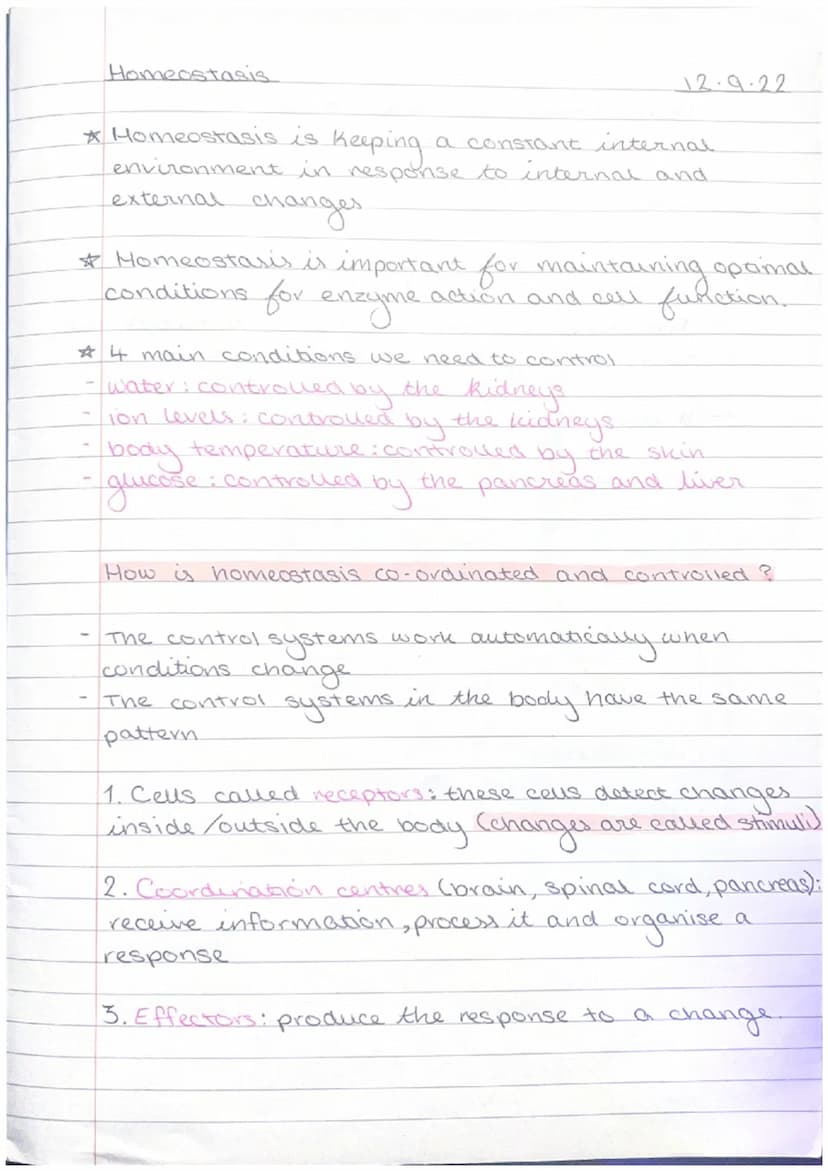 Homeostasis
12.9.22
* Homeostasis is keeping a constant internal
environment in response to internal and
external changes
* Homeostasis is important for maintaining optimal
conditions for enzyme action and cell function.
* 4 main conditions we need to control
- water: controlled by the kidneys
- ion levels: controlled by the kidneys
- body temperature: controlled by the skin
- glucose: controlled by the pancreas and liver
How is homeostasis co-ordinated and controlled?
- The control systems work automatically when
conditions change
- The control systems in the body have the same
pattern
1. Cells called receptors: these cells detect changes
inside/outside the body (changes are called stimuli)
2. Coordination centres (brain, spinal cord, pancreas):
receive information, process it and organise a
response
3. Effectors: produce the response to a change.